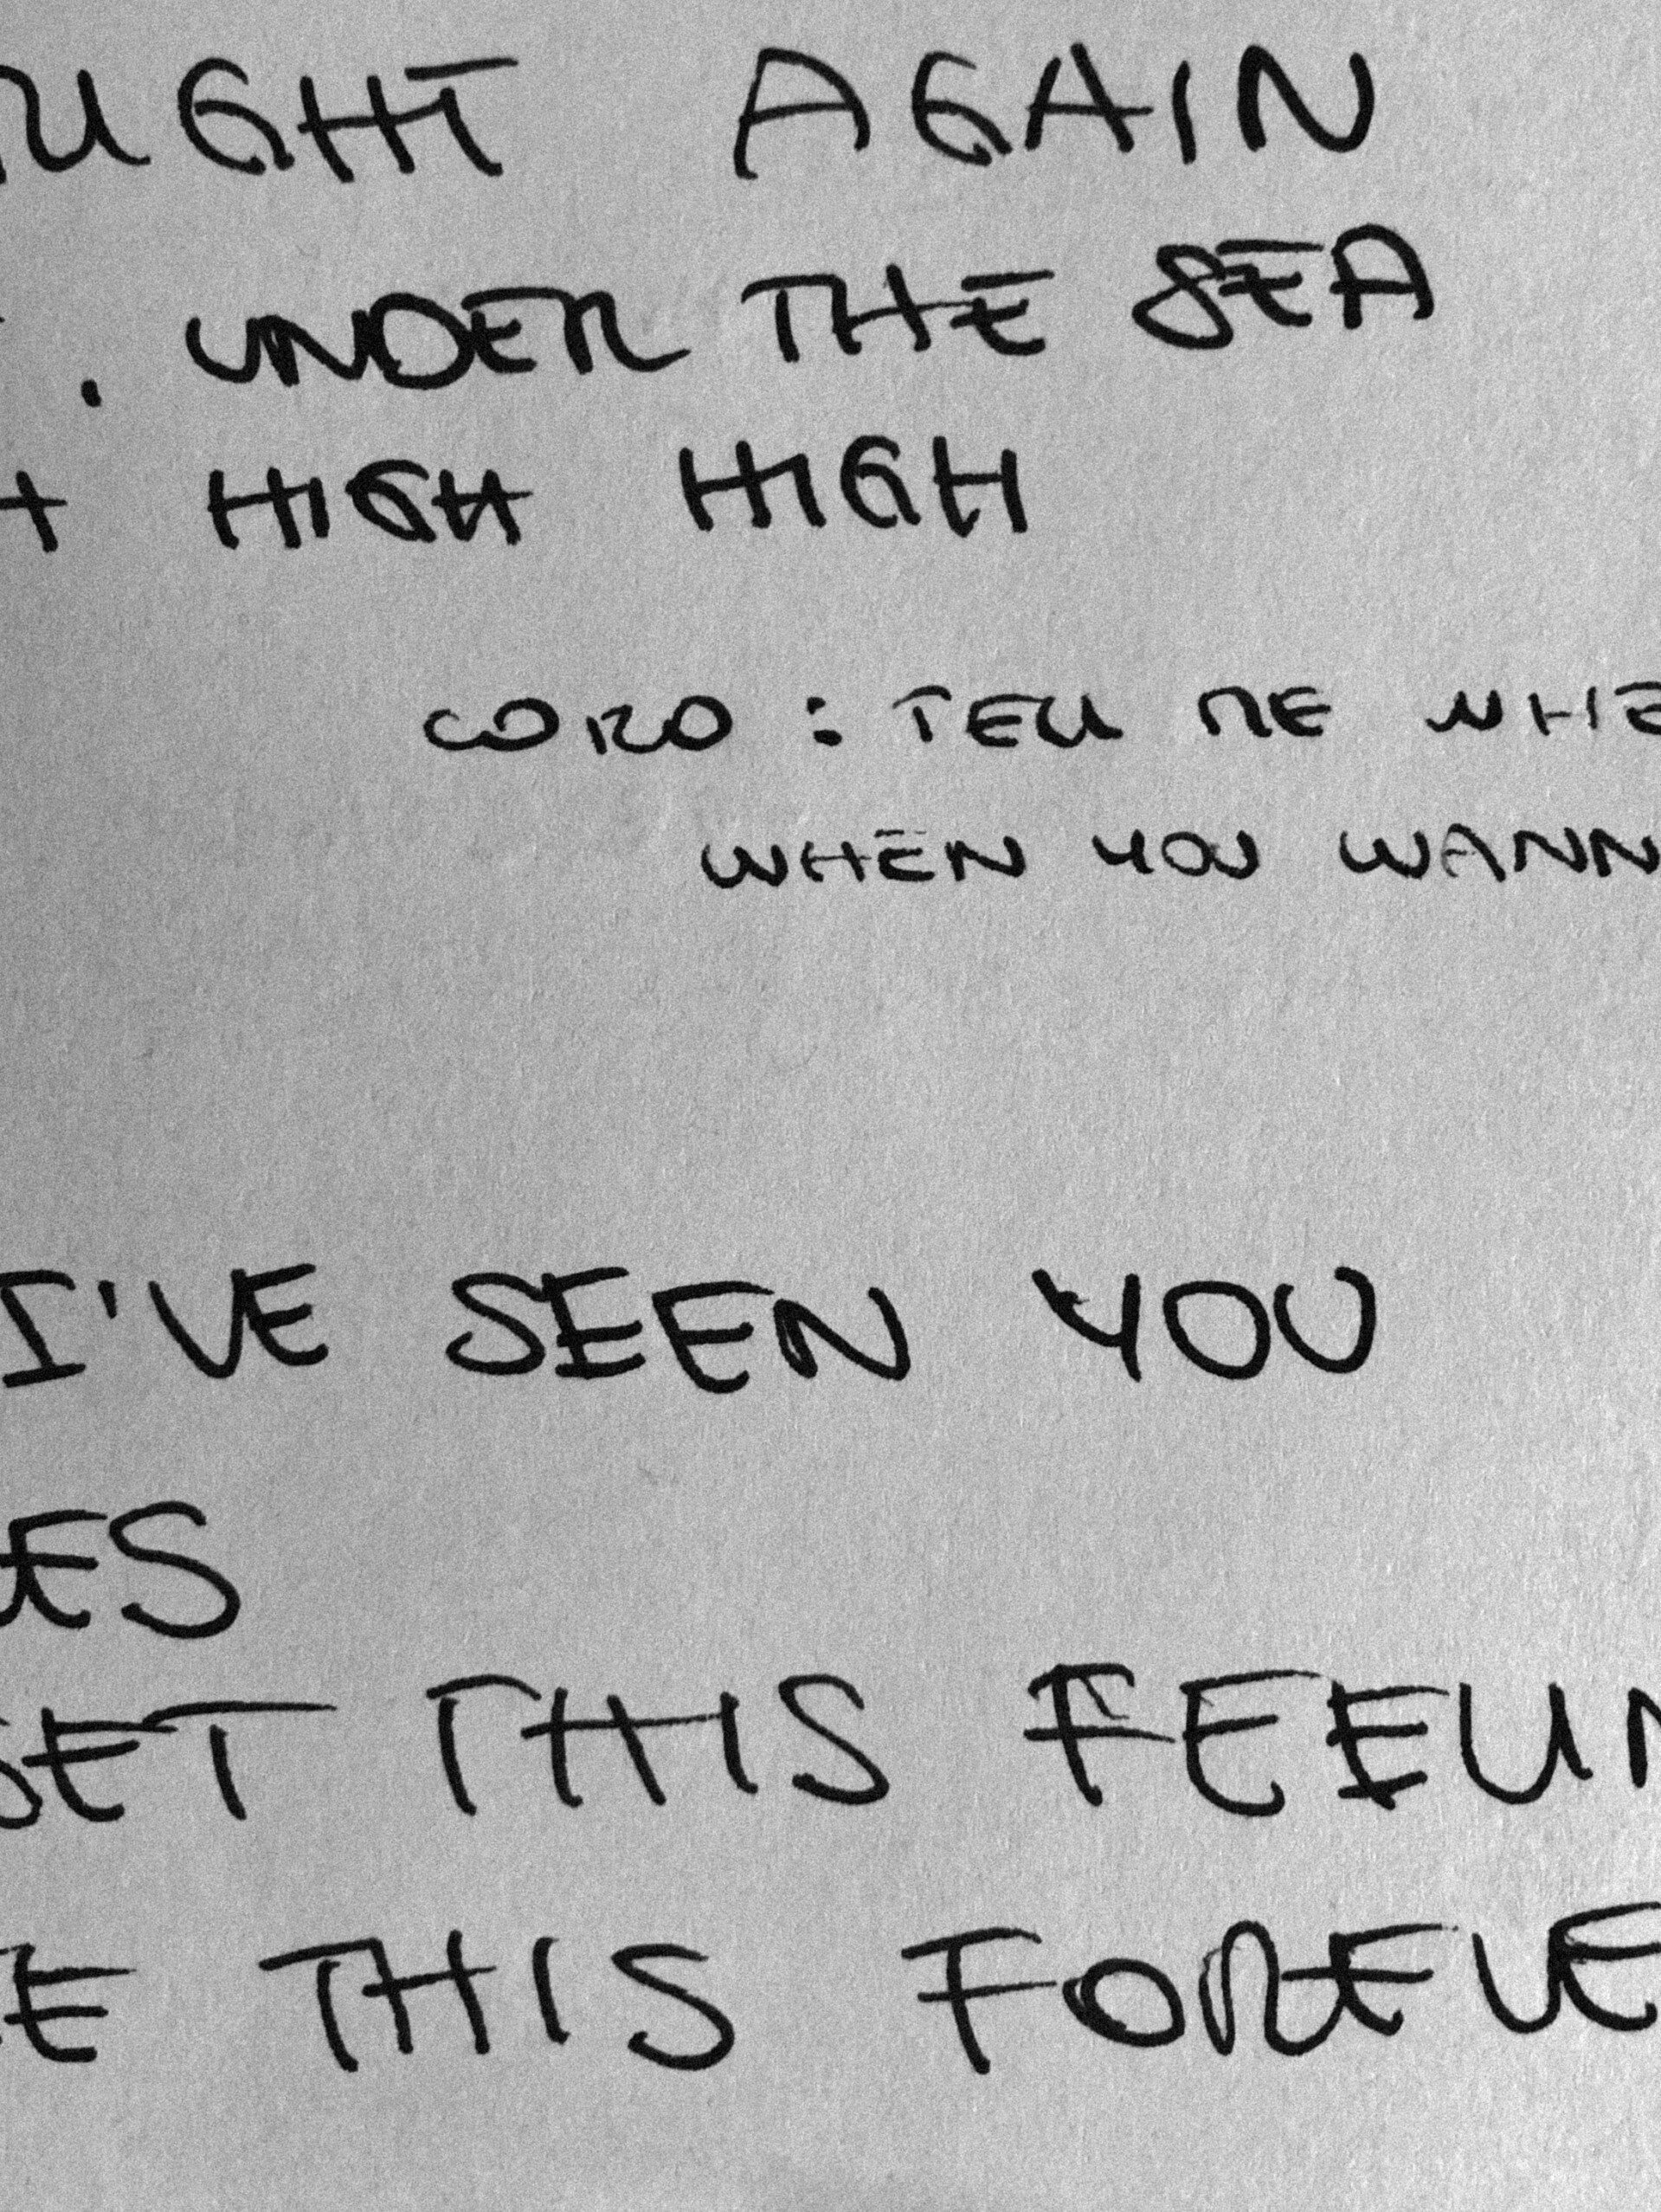 UGHT AGAIN
. UNDER THE SEA
HIGH HIGH
CORO : TELL ME WHE
WHEN YOU WANN
I'VE SEEN YOU
ES
GET THIS FEELIN
E THIS FOREVE